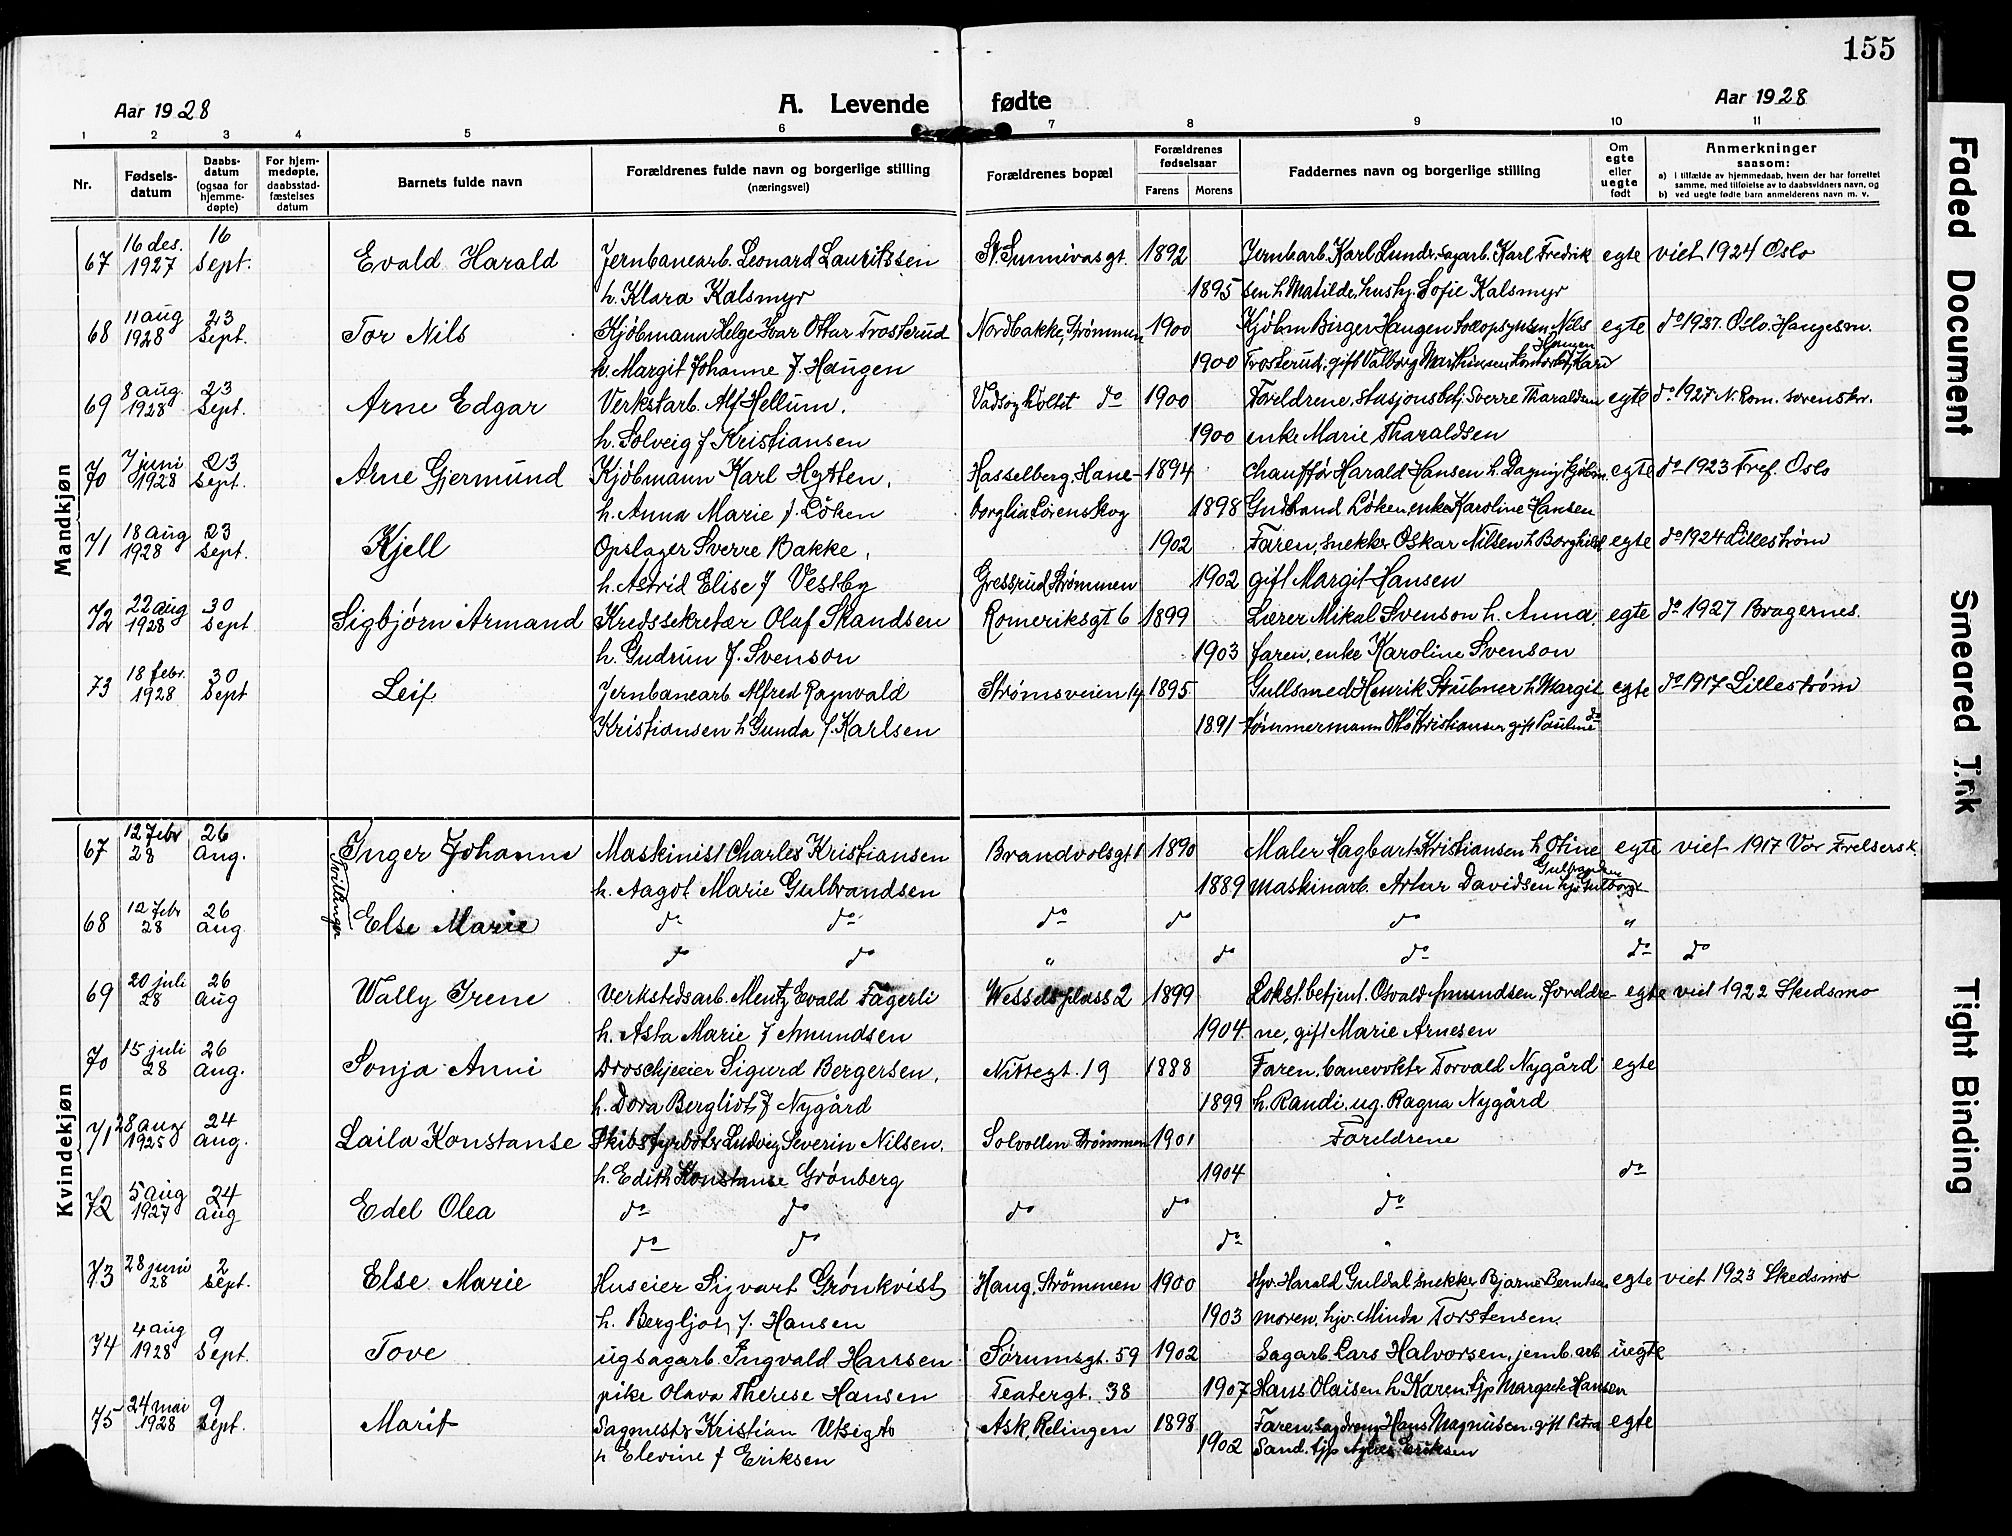 155
Aar 1928 A. Levende fødte Aar 1928
1 2 3 4 5 6 7 8 9 10 11
Nr. Fødsels-datum Daabs-datum (ogsaa for hjemme-døpte) For hjem-medøpte, daabsstad-fæstelses datum Barnets fulde navn Forældrenes fulde navn og borgerlige stilling (næringsvei) Forældrenes bopæl Forældrenes fødselsaar Farens Morens Faddernes navn og borgerlige stilling Om egte eller uegte født Anmerkninger saasom:
a) i tilfælde av hjemmedaab, hvem der har forrettet samme, med tilføielse av to daabsvidners navn, og
b) ved uegte fødte barn anmelderens navn m. v.
Mandkjøn
67 16 des. 1927 16 Sept. Evald Harald Jernbanearb. Leonard Lauritssen St. Sunnivasgt. 1892 Jernbarb. Karl Lund, sagarb. Karl Fredrik egte viet 1924 Oslo
h. Klara Kalsmyr 1895 sen h. Matilde, hushj. Sofie Kalsmyr
68 11 aug 1928 23 Sept. Tor Nils Kjøbmann Helge Ivar Ottar Trosterud Nordbakke, Strømmen 1900 Kjøbm Birger Haugen Nils egte do 1927. Oslo. Haugesm.
h. Margit Johanne f. Haugen 1900 Trosterud, gift Valborg Mathisen Haugen
69 8 aug. 1928 23 Sept. Arne Edgar Verkstarb. Alf Hellum. do 1900 Foreldrene, stasjonsbetj. Sverre Tharaldsen egte do 1927 N. Rom. sorenskr.
h. Solveig f Kristiansen 1900 enke Marie Tharaldsen
70 7 juni 1928 23 Sept. Arne Gjermund Kjøbmann Karl Hytten, Hasselberg, Hane- 1894 chauffør Harald Hansen h. Dagny, kjøbm. egte do 1923 Tref. Oslo
h. Anna Marie f. Löken borglia Lørenskog 1898 Gudbrand Løken, enke Karoline Hansen
71 18 aug 1928 23 Sept. Kjell Opslager Sverre Bakke, 1902 Faren, snekker Oskar Nilsen h Borghild egte do 1924 Lillestrøm
h. Astrid Elise f Vestby Gressrud Strømmen 1902 gift Margit Hansen
72 22 aug 1928 30 Sept Sigbjørn Armand Kredssekretær Olaf Skandsen Romeriksgt 6 1899 Lærer Mikal Svenson h. Anna, egte do 1927 Bragernes.
h. Gudrun f. Svenson 1903 faren, enke Karoline Svenson
73 18 febr. 1928 30 Sept Leif Jernbanearb Alfred Ragnvald Strømsveien 14 1895 Gullsmed Henrik Stubner h Margit egte do 1917 Lillestrøm
Kristiansen h Gunda f. Karlsen 1891 tømmermann Otto Kristiansen gift Pauline do
Kvindekjøn
67 12 febr 28 26 Aug. Inger Johanne Maskinist Charles Kristiansen Brandvolsgt 1 1890 Maler Hagbart Kristiansen h Otine egte viet 1917 Vor Frelsersk.
Tvillinger h. Aagot Marie Gulbrandsen 1889 maskinarb. Artur Davidsen Gulbrandsen
68 12 febr 28 26 Aug Else Marie do do do do do "
do do " do do do do
69 20 juli 28 26 Aug Wally Irene Verkstedsarb. Mentz Evald Fagerli Wesselsplass 2 1899 Lokst.betjent. Osvald Amundsen, foreldre- egte viet 1922 Skedsmo
h. Asta Marie f Amundsen 1904 ne, gift Marie Arnesen
70 15 juli 28 26 Aug. Sonja Anni Droschjeeier Sigurd Bergersen, Nittegt. 19 1888 Faren, banevokter Torvald Nygård egte
h. Dora Bergliot f Nygård 1899 h. Randi, ug. Ragna Nygård
71 28 aug 1925 24 Aug. Laila Konstanse Skibsfyrbøter Ludvig Severin Nilsen, Solvollen Strømmen 1901 Foreldrene
h. Edith Konstanse Grønberg 1904 do
72 5 aug 1927 24 Aug Edel Olea do do do do do
do do do "
73 28 juni 28 2 Sept. Else Marie Huseier Sigvart Grønkvist Haug, Strømmen 1900 Hjv. Harald Guldal, snekker Bjarne Berntsen egte viet 1923 Skedsmo
h. Bergljot f. Hansen 1903 moren, hjv. Minda Torstensen.
74 4 aug 1928 9 Sept. Tove ugsagarb. Ingvald Hansen Sørumsgt. 59 1902 Sagarb. Lars Halvorsen, jernb. arb uegte
pike Olava Therese Hansen Teatergt. 38 1907 Hans Olaisen h Karen, tjp Margrete Hansen
75 24 mai 1928 9 Sept. Marit Sagmestr Kristian Utsigt Ask, Relingen 1898 Faren, sagdreng Hans Magnusen, gift Petra egte
h Elevine f Eriksen 1902 Sand. tjp Agnes Eriksen
Faded Document
Smeared Ink
Tight Binding